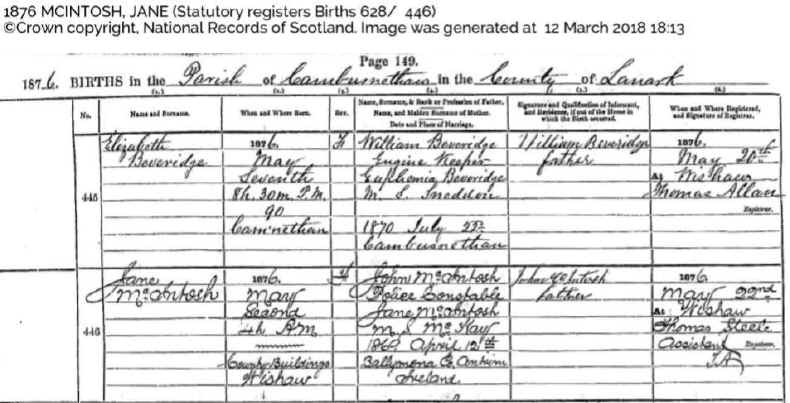 1876 MCINTOSH, JANE (Statutory registers Births 628/ 446)
©Crown copyright, National Records of Scotland. Image was generated at 12 March 2018 18:13
Page 149.
1876. BIRTHS in the Parish of Cambusnethan in the County of Lanark
(1.) (2.) (3.) (4.) (5.) (6.)
No. Name and Surname. When and Where Born. Sex. Name, Surname, & Rank or Profession of Father. Signature and Qualification of Informant, When and Where Registered,
Name, and Maiden Surname of Mother. and Residence, if out of the House in and Signature of Registrar.
Date and Place of Marriage. which the Birth occurred.
Elizabeth 1876. F William Beveridge William Beveridge 1876.
Beveridge May Engine Keeper father May 20th
Seventh Euphemia Beveridge At Wishaw
445 8h. 30m. P.M. M. S. Thomas Allan
90 Registrar.
Cam'nethan 1870 July
Cambusnethan
Jane 1876. F John McIntosh John McIntosh 1876.
McIntosh May Police Constable father May 22nd
Second Jane McIntosh At Wishaw
446 4h. A.M. M. S. McKay Thomas Steele
1869 April 12th Assistant Registrar.
County Buildings Ballymona Co. Antrim
Wishaw Ireland.